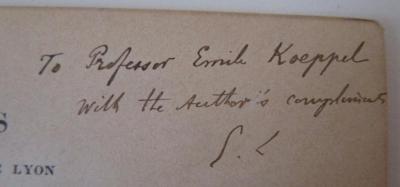 To Professor Emile Koeppel
with the Author's compliments
S
LYON